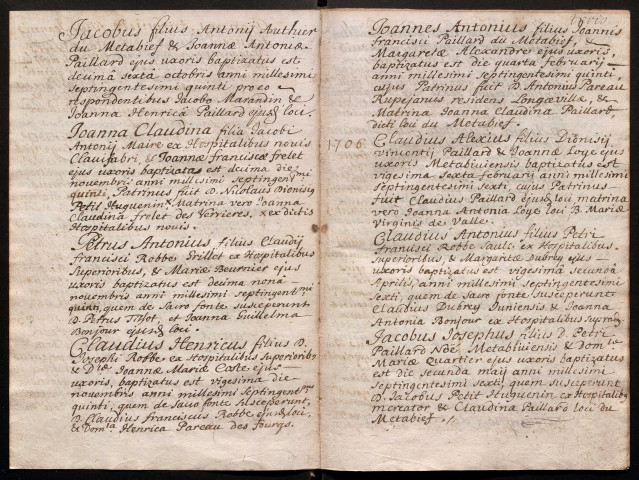 Jacobus filius Antonij Authier
du Metabief & Joannæ Antoniæ
Paillard ejus uxoris baptizatus est
decima sexta octobris anni millesimi
septingentesimi quinti pro eo
respondentibus Jacobo Marandin &
Joanna Henrica Paillard ejusd loci.
Joanna Claudina filia Jacobi
Antonij Maire ex Hospitalibus novis
Claufabri, & Joannæ franciscæ frelet
ejus uxoris baptizatas est decima die
novembris anni millesimi septingentmi
quinti, Patrinus fuit D. Nicolaus Dionisius
Petit Huguenin, Matrina vero Joanna
Claudina frelet des Verrieres, ex dictis
Hospitalibus novis.
Petrus Antonius filius Claudij
francisci Robbe Grillet ex Hospitalibus
Superioribus, & Mariæ Beurnier ejus
uxoris baptizatus est decima nona
novembris anni millesimi septingentmi
quinti, quem de Sacro fonte susceperunt
D. Petrus Tissot et Joanna Guillelma
Bonjour ejusd loci.
Claudius Henricus filius D.
Josephi Robbe ex Hospitalibus Superiorib9
& Dtæ Joannæ Mariæ Caste ejus
uxoris, baptizatus est vigesima die
novembris anni millesimi Septingent
quinti, quem de sacro fonte susceperunt,
D. Claudius franciscus Robbe ejusd loci,
& Domta Henrica Pareau des fourgs.
Joannes Antonius filius Joannis
francisci Paillard du Metabief, &
Margaretæ Alexandre ejus uxoris,
baptizatus est die quarta februarij
anni millesimi Septingentesimi quinti,
cujus Patrinus fuit D. Antonius Pareau
Rupejanus residens Longavillæ, &
Matrina Joanna Claudina Paillard,
dicti lou du Metabief.
1706 Claudius Alexius filius Dionisij
vincentij Paillard & Joannæ Loye ejus
uxoris Metabiviensis baptizatus est
vigesima Sexta februarij anni millesimi
Septingentesimi Sexti, cujus Patrinus
fuit Claudius Paillard ejusd loci, matrina
vero Joanna Antonia Loye loci B. Mariæ
Virginis de Valle.
Claudius Antonius filius Petri
francisci Robbe Saule ex Hospitalibus
Superioribus, & Margaritæ Dubrey ejus
uxoris baptizatus est vigesima secunda
Aprilis, anni millesimi septingentesimi
sexti, quem de sacro fonte susceperunt
Claudius Dubrey Juniensis & Joanna
Antonia Bonjour ex Hospitalibus Supra
Jacobus Josephus filius D. Petri
Paillard Noe Metabiviensis & Domtæ
Mariæ Quartier ejus uxoris baptizatus
est die secunda maij anni millesimi
septingentesimi sexti, quem susceperunt
D. Jacobus Petit Huguenin ex Hospitalib9
mercator & Claudina Paillard loci du
Metabief.